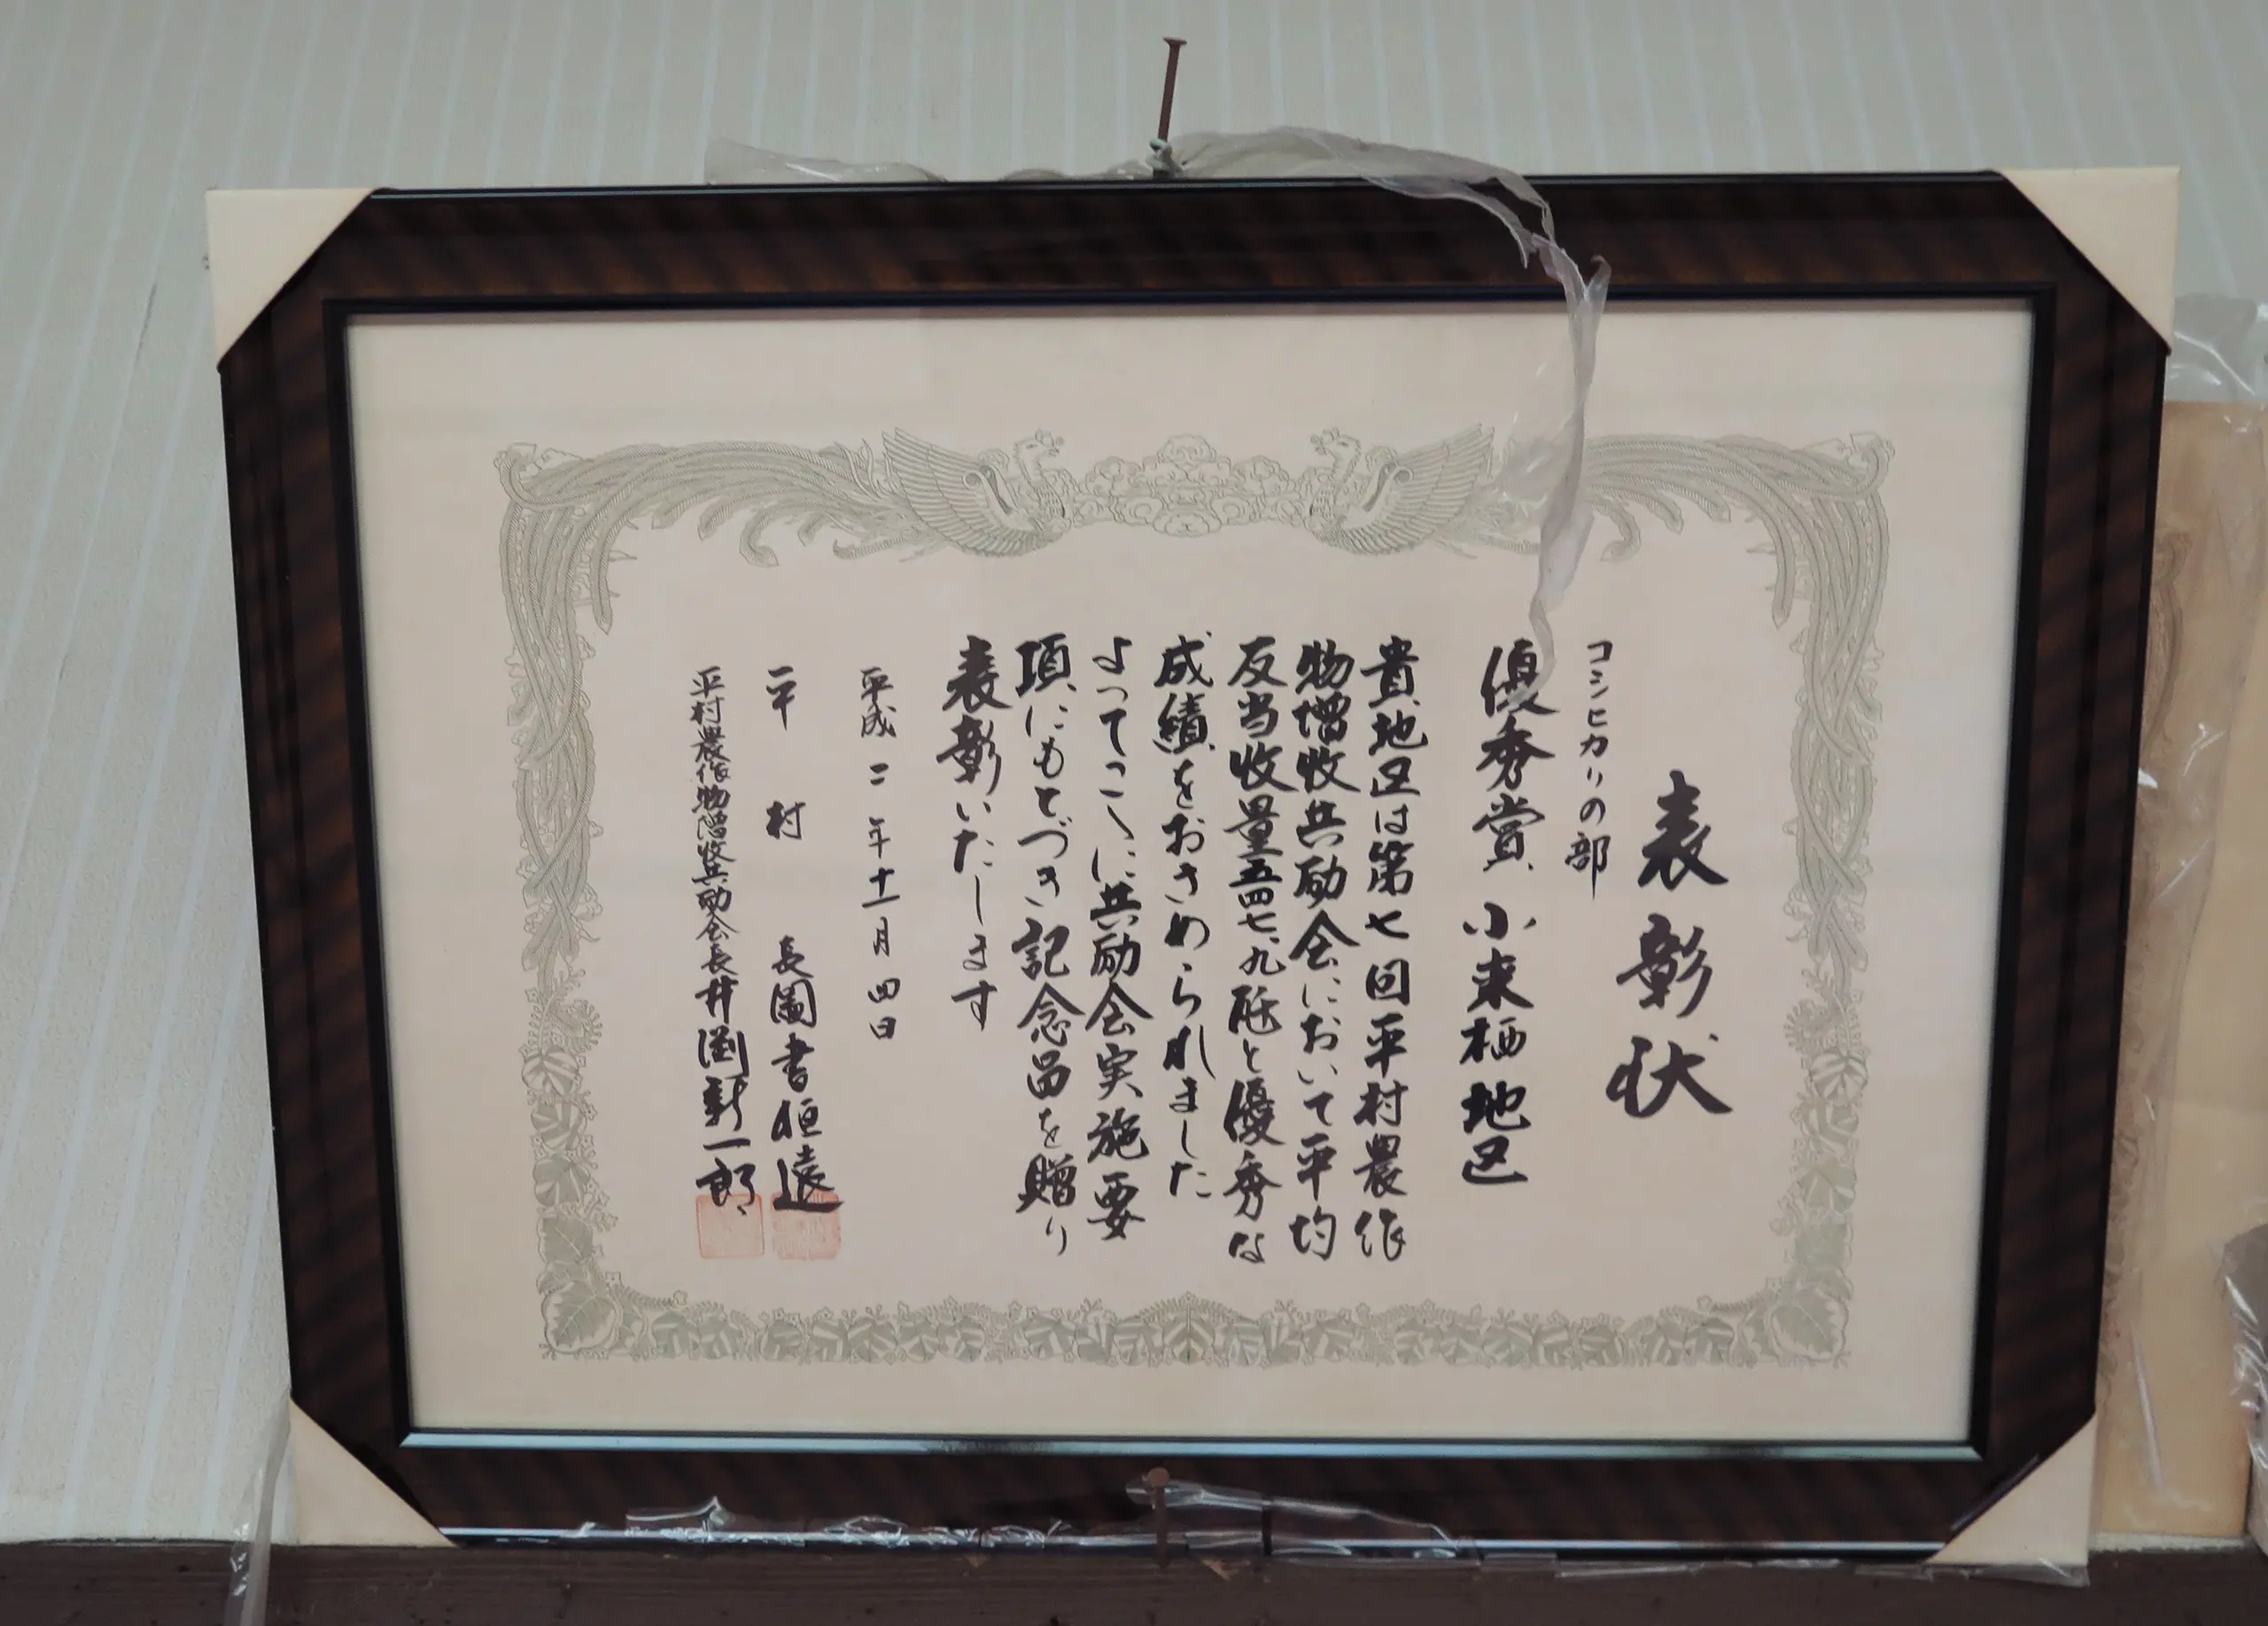 表彰状
コシヒカリの部
優秀賞 小来栖地区
貴地区は第七回平村農作
物増收共励会において平均
反当收量五四七.九瓩と優秀な
成績をおさめられました
よってこゝに共励会実施要
項にもとづき記念品を贈り
表彰いたします
平成二年十一月四日
平村長 図書恒遠
平村農作物増收共励会長 井渕新一郎